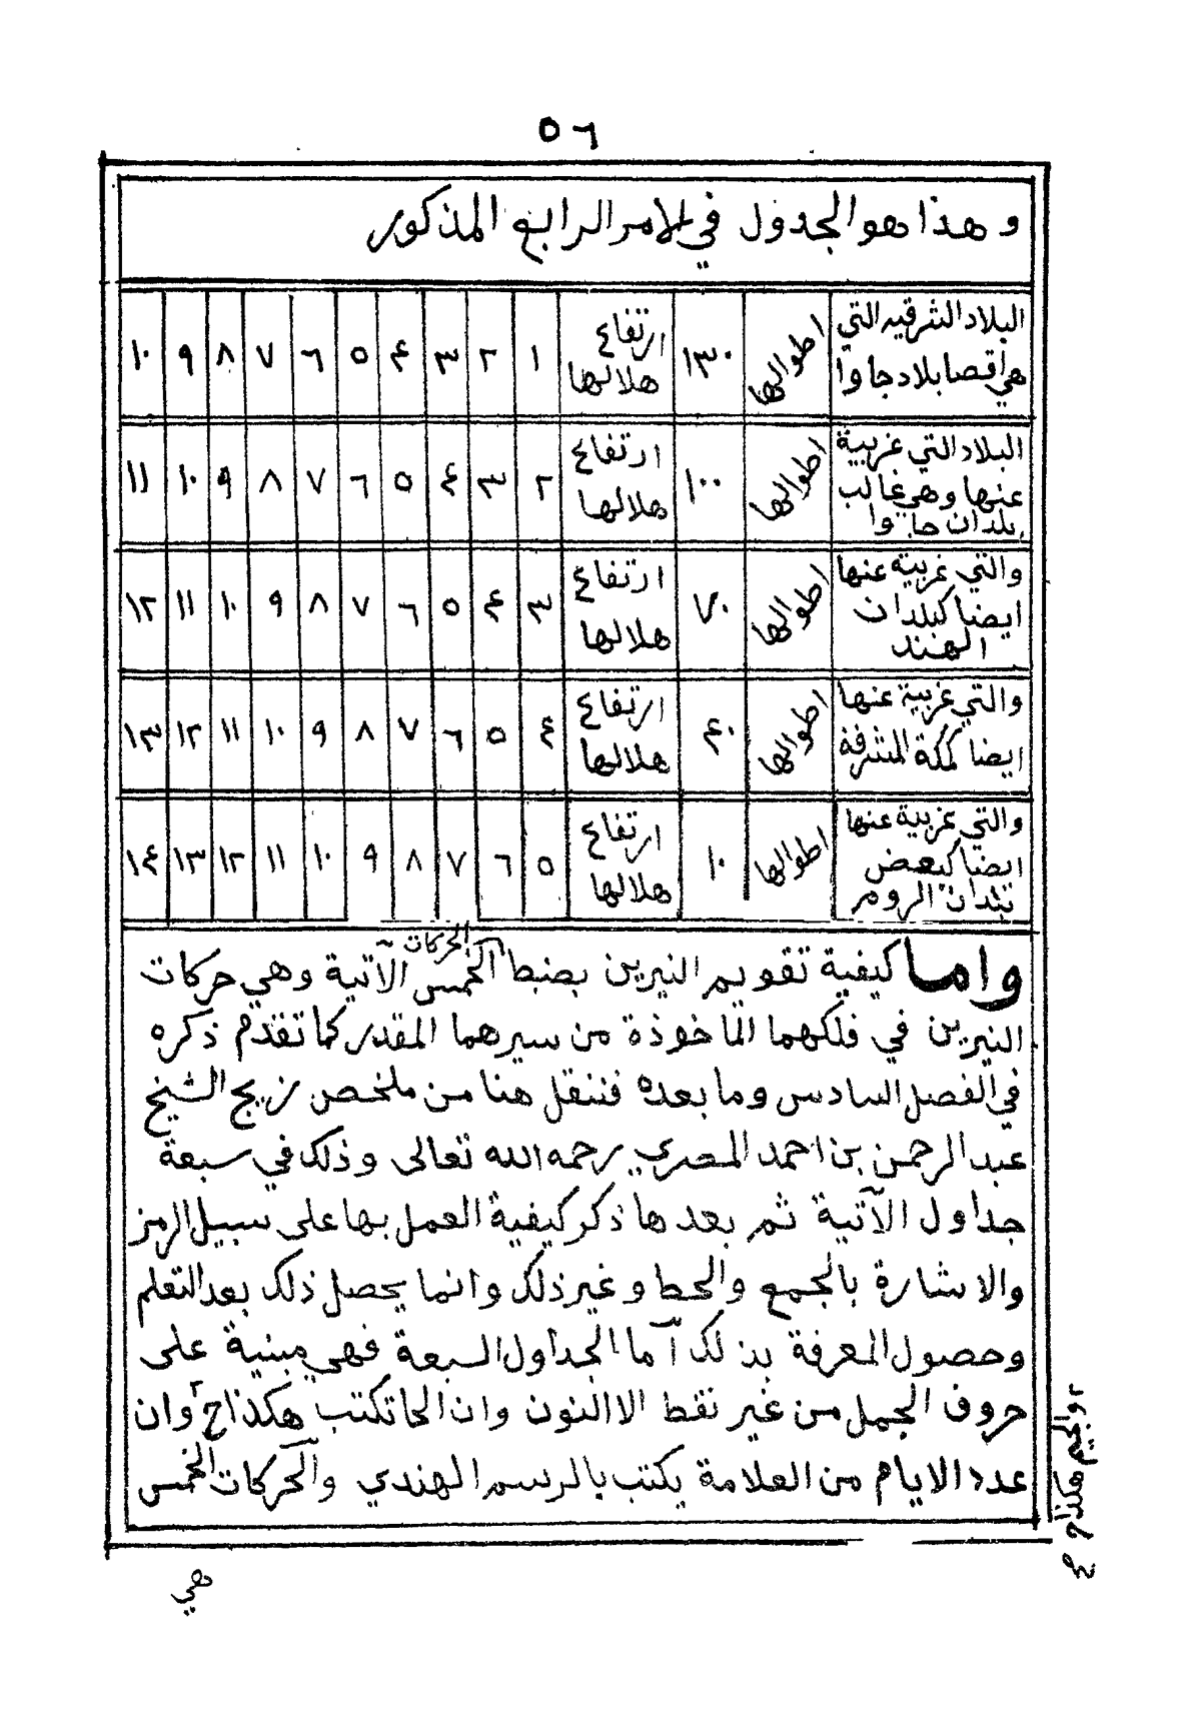 ٥٦
وهذا هو الجدول في الامر الرابع المذكور
البلاد الشرقيه التي هي اقصا بلاد جاوا | اطوالها | ١٣٠ | ارتفاع هلالها | ١ | ٢ | ٣ | ٤ | ٥ | ٦ | ٧ | ٨ | ٩ | ١٠
البلاد التي غربية عنها وهي غالب بلدان جاوا | اطوالها | ١٠٠ | ارتفاع هلالها | ٢ | ٣ | ٤ | ٥ | ٦ | ٧ | ٨ | ٩ | ١٠ | ١١
والتي غربية عنها ايضا كبلدان الهند | اطوالها | ٧٠ | ارتفاع هلالها | ٣ | ٤ | ٥ | ٦ | ٧ | ٨ | ٩ | ١٠ | ١١ | ١٢
والتي غربية عنها ايضا كمكة المشرفة | اطوالها | ٤٠ | ارتفاع هلالها | ٤ | ٥ | ٦ | ٧ | ٨ | ٩ | ١٠ | ١١ | ١٢ | ١٣
والتي غربية عنها ايضا كبعض بلدان الروم | اطوالها | ١٠ | ارتفاع هلالها | ٥ | ٦ | ٧ | ٨ | ٩ | ١٠ | ١١ | ١٢ | ١٣ | ١٤
واما كيفية تقويم النيرين بضبط الحركات الخمس الآتية وهي حركات
النيرين في فلكهما الماخوذة من سيرهما المقدر كما تقدم ذكره
في الفصل السادس وما بعده فننقل هنا من ملخص زيج الشيخ
عبد الرحمن بن احمد المصري رحمه الله تعالى وذلك في سبعة
جداول الآتية ثم بعدها ذكر كيفية العمل بها على سبيل الرمز
والاشارة بالجمع والحط وغير ذلك وانما يحصل ذلك بعد التعلم
وحصول المعرفة بذلك آما الجداول السبعة فهي مبنية على
حروف الجمل من غير نقط الا النون وان الحا تكتب هكذا ح وان
عدد الايام من العلامة يكتب بالرسم الهندي والحركات الخمس
والجيم هكذا
هي